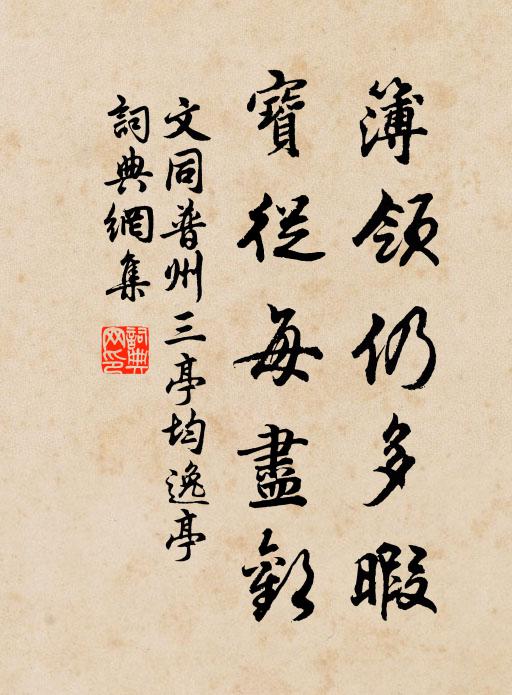 簿領仍多暇
寶從每盡歡
文同普州三亭均逸亭
詞典網集
詞典网印